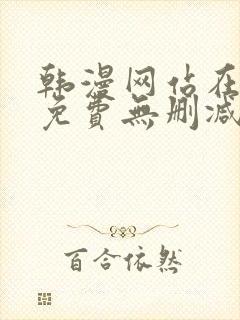 韩漫网站在
免費無删减
百合依然